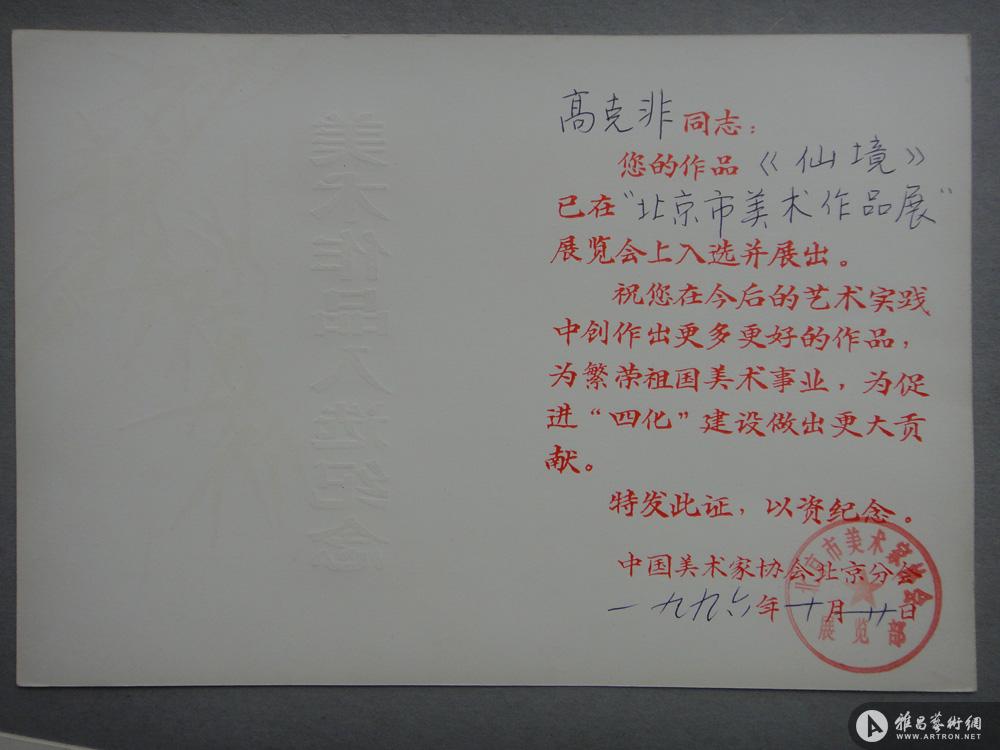 美术作品入选纪念
高克非同志：
您的作品《仙境》
已在“北京市美术作品展”
展览会上入选并展出。
祝您在今后的艺术实践
中创作出更多更好的作品，
为繁荣祖国美术事业，为促
进“四化”建设做出更大贡
献。
特发此证，以资纪念。
中国美术家协会北京分会
一九九六年十月廿日
北京市美术家协会
展览部
雅昌藝術網
WWW.ARTRON.NET